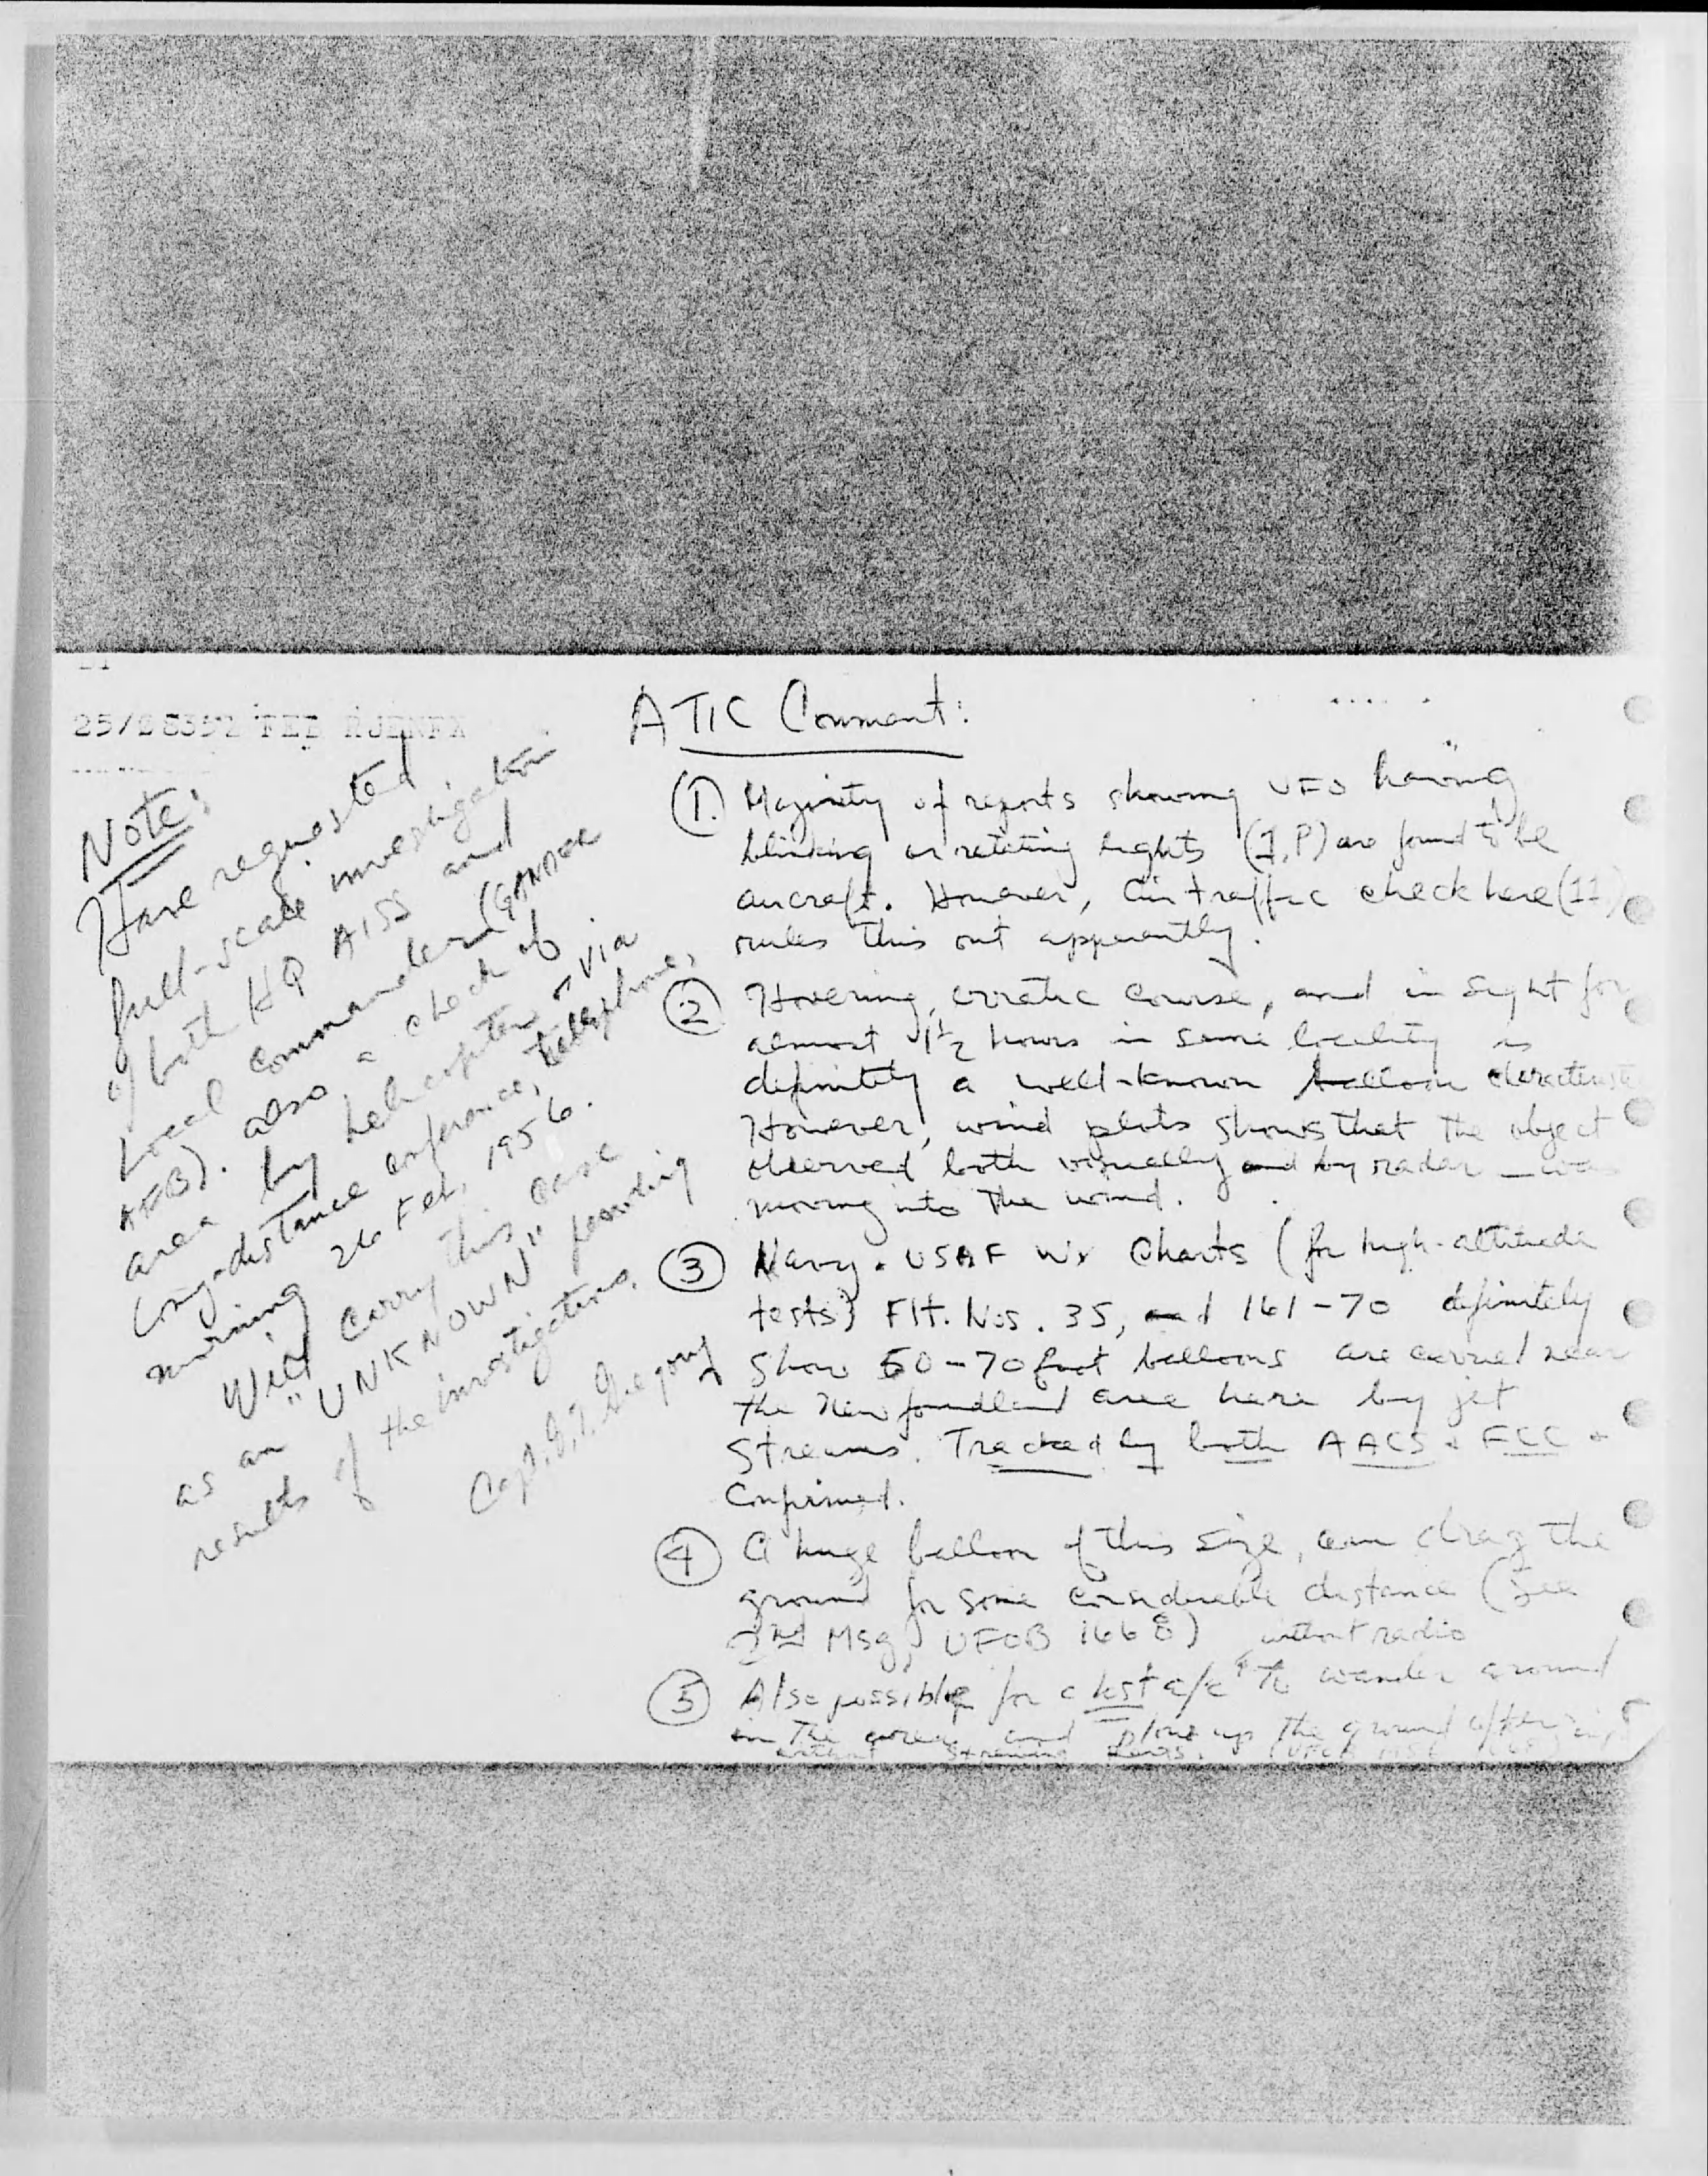 25/2835Z FEB RJEN
ATIC Comment:
Note:
Have requested
full-scale investigation
of both HQ AISS and
Local commander (GANDER
AFB). also a check of
area by helicopter - via
long-distance conference, telephone,
morning 26 Feb, 1956.
Will carry this case
as an "UNKNOWN" pending
results of the investigations.
Capt. G.T. Gregory
1. Majority of reports showing UFO having
blinking or rotating lights (1, P) are found to be
aircraft. However, air traffic check here (11)
rules this out apparently.
2 Hovering, erratic course, and in sight for
almost 1½ hours in same locality is
definitely a well-known balloon
However, wind plots shows that the object
observed both visually and by radar - was
moving into the wind.
3 Navy & USAF Wx Charts (for high-altitude
tests) Flt. Nos. 35, and 161-70 definitely
show 50-70 foot balloons are carried near
the Newfoundland area here by jet
Streams. Tracked by both AACS & FCC &
Confirmed.
4 A huge balloon of this size, can drag the
ground for some considerable distance (See
2nd Msg, UFOB 1668)
5 Also possible for a lost a/c without radio to wander around
in the area and plow up the ground after
without strewing parts.